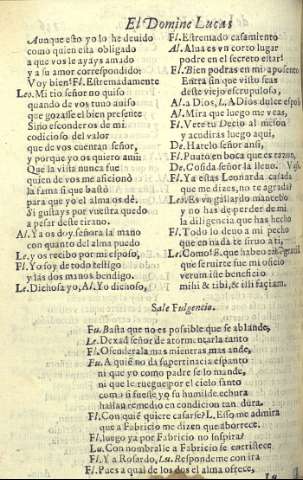 El Domine Lucas
Aunque esto yo lo he deuido
como quien esta obligado
a que vos le ayays amado
y a su amor correspondido:
Voy bien? Fl. Estremadamente
Leo. Mi tio señor no quiso
quando de vos tuuo auiso
que gozasse el bien presente
Sino esconderos de mi
codicioso del valor
que de vos cuentan señor,
y porque yo os quiero ansi
Que la vista nunca fue
quien de vos me aficionò
la fama si que bastò
para que yo el alma os dè.
Si gustays por vuestra quedo
a pesar deste tirano.
Al. Ya os doy señora la mano
con quanto del alma puedo
Le. y os recibo por mi esposo,
Fl. Yo soy de todo testigo
y las dos manos bendigo.
Le. Dichosa yo, Al. Yo dichoso,
Fl. Estremado casamiento
Al. Alua es vn corto lugar
podre en el secreto estar?
Fl. Bien podras en mi aposento
Entra sin que visto seas
deste viejo escrupuloso,
Al. a Dios, L. A Dios dulce esposo
Al. Mira que luego me veas,
Fl. Vete tu Decio al meson
y acudiras luego aqui,
De. Harelo señor ansi,
Fl. Punto en boca que es razon,
De. Cosida señor la lleuo. Vase
Fl. Ya estas Leonarda casada
que me dizes, no te agrada?
Leo. Es vn gallardo mancebo
y no has de perder de mi
la diligencia que has hecho
Fl. Todo lo deuo a mi pecho
que en nada te siruo a ti,
Le. Como? Fl. que
que seruirte fue mi oficio
verum iste beneficio
mihi & tibi, & illi façiam.
Sale Fulgencio.
Fu. Basta que no es possible que se ablande,
Le. Dexad señor de atormentarla tanto
Fl. Ofenderala mas mientras mas ande,
Fu. A quiè no da
ni que yo como padre se lo mande,
ni que le ruegue por el cielo santo
como si fuesse yo su humilde echura
hallan remedio en condicion tan dura.
Fl. Con quiè quiere casarse? L. Esso me admira
que a Fabricio me dizen que aborrece.
Fl. luego ya por Fabricio no suspira?
Lu. Con nombralle a Fabricio se entristece
Fl. Y a Rosardo, Lu. Responde me con ira
Fl. Pues a qual de los dos el alma ofrece,